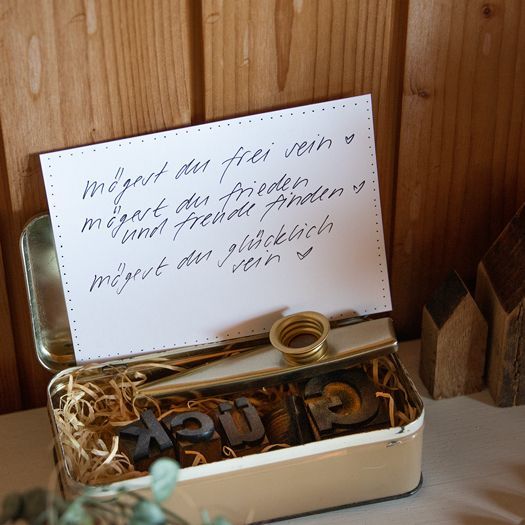 mögest du frei sein ♡
mögest du frieden
und freude finden ♡
mögest du glücklich
sein ♡
Glück